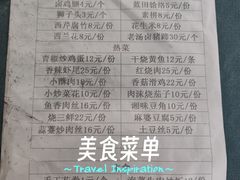 卤鸡蛋4元/个 蓝田饸饹6元/份
狮子头3元/个 素拼8元/份
西芹腐竹8元/份 花生米8元/份
西兰花8元/份 老汤卤猪蹄30元/个
热菜
青椒炒鸡蛋12元/份 干烧黄鱼12元/条
香辣虾尾25元/份 红烧肉25元/份
小酥肉10元/份 香菇滑鸡22元/份
小炒菜花10元/份 肉沫烧茄子10元/份
鱼香肉丝16元/份 湘味豆角10元/份
烧三鲜22元/份 麻婆豆腐5元/份
蒜薹炒肉丝16元/份 土豆丝5元/份
美食菜单
Travel Inspiration